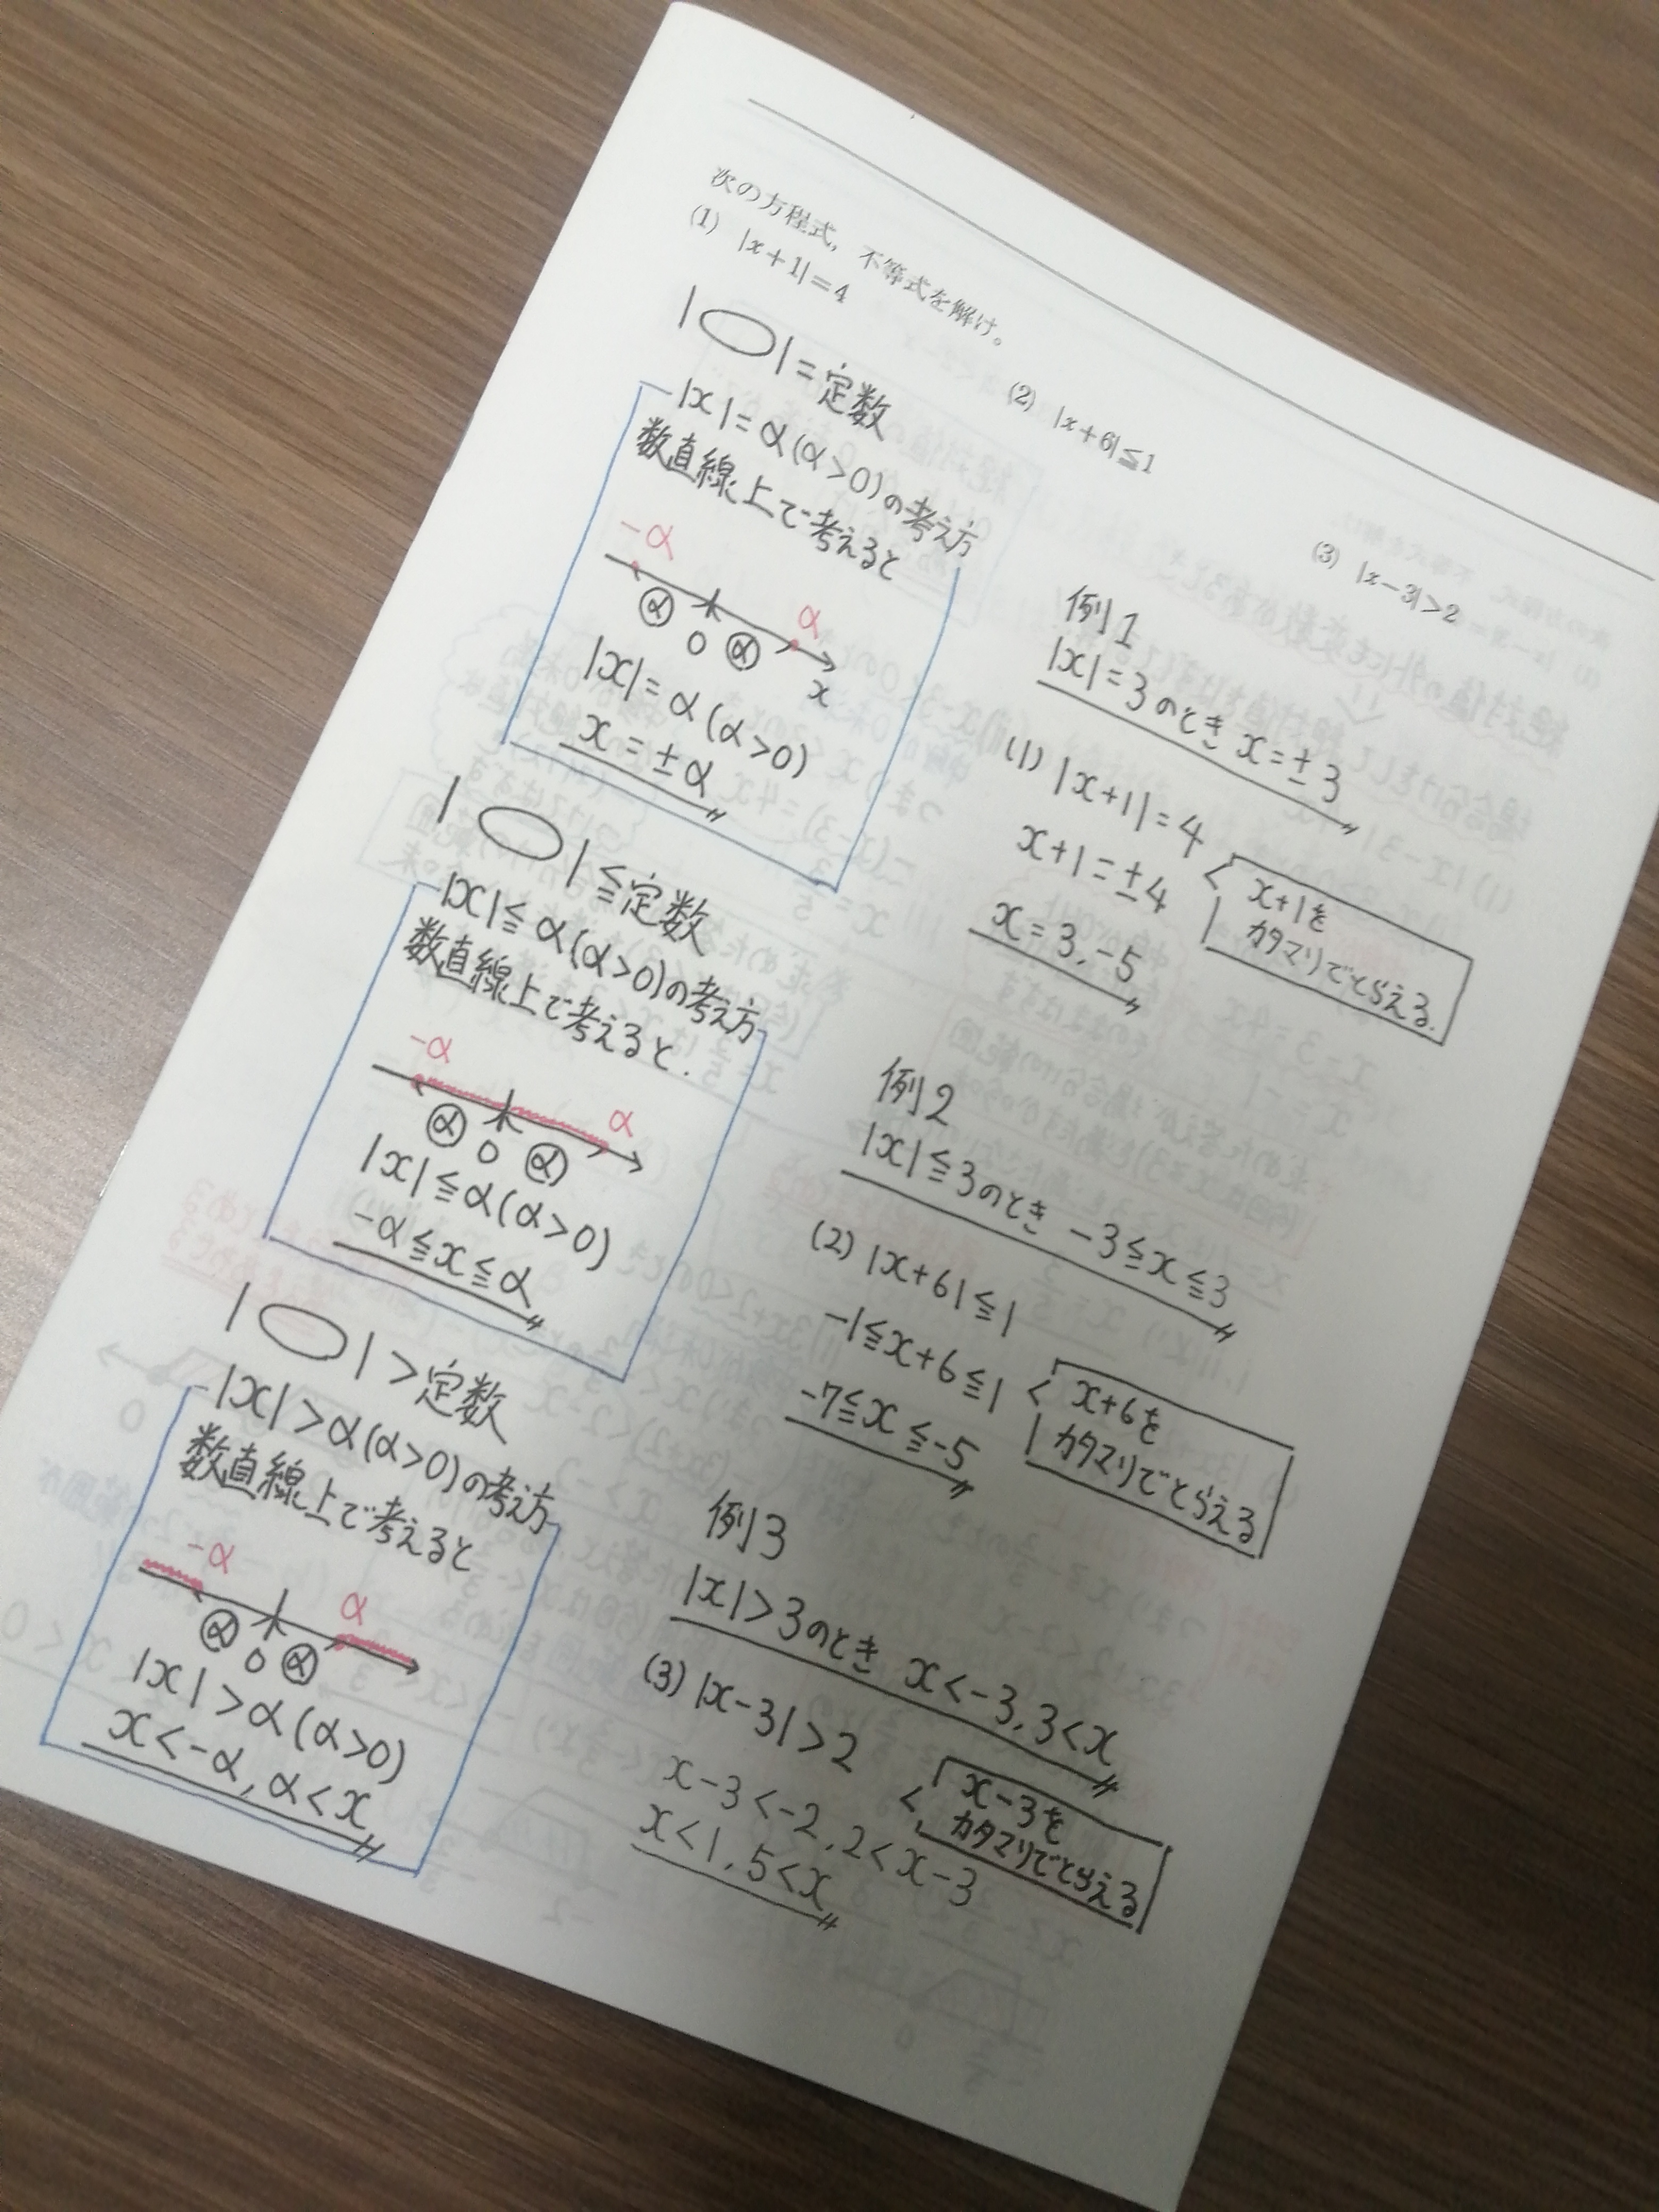 次の方程式，不等式を解け。
(1) |x+1|=4
(2) |x+6|≦1
(3) |x−3|>2
| |=定数
|x|=α(α>0)の考え方
数直線上で考えると
-α
α
α 0 α
x
|x|=α(α>0)
x=±α
| |≦定数
|x|≦α(α>0)の考え方
数直線上で考えると.
-α
α
α 0 α
|x|≦α(α>0)
-α≦x≦α
| |>定数
|x|>α(α>0)の考え方
数直線上で考えると
-α
α
α 0 α
|x|>α(α>0)
x<-α, α<x
例1
|x|=3のとき x=±3
(1) |x+1|=4
x+1=±4
x+1を
カタマリでとらえる.
x=3,-5
例2
|x|≦3のとき -3≦x≦3
(2) |x+6|≦1
-1≦x+6≦1
x+6を
カタマリでとらえる
-7≦x≦-5
例3
|x|>3のとき x<-3, 3<x
(3) |x-3|>2
x-3<-2, 2<x-3
x-3を
カタマリでとらえる
x<1, 5<x